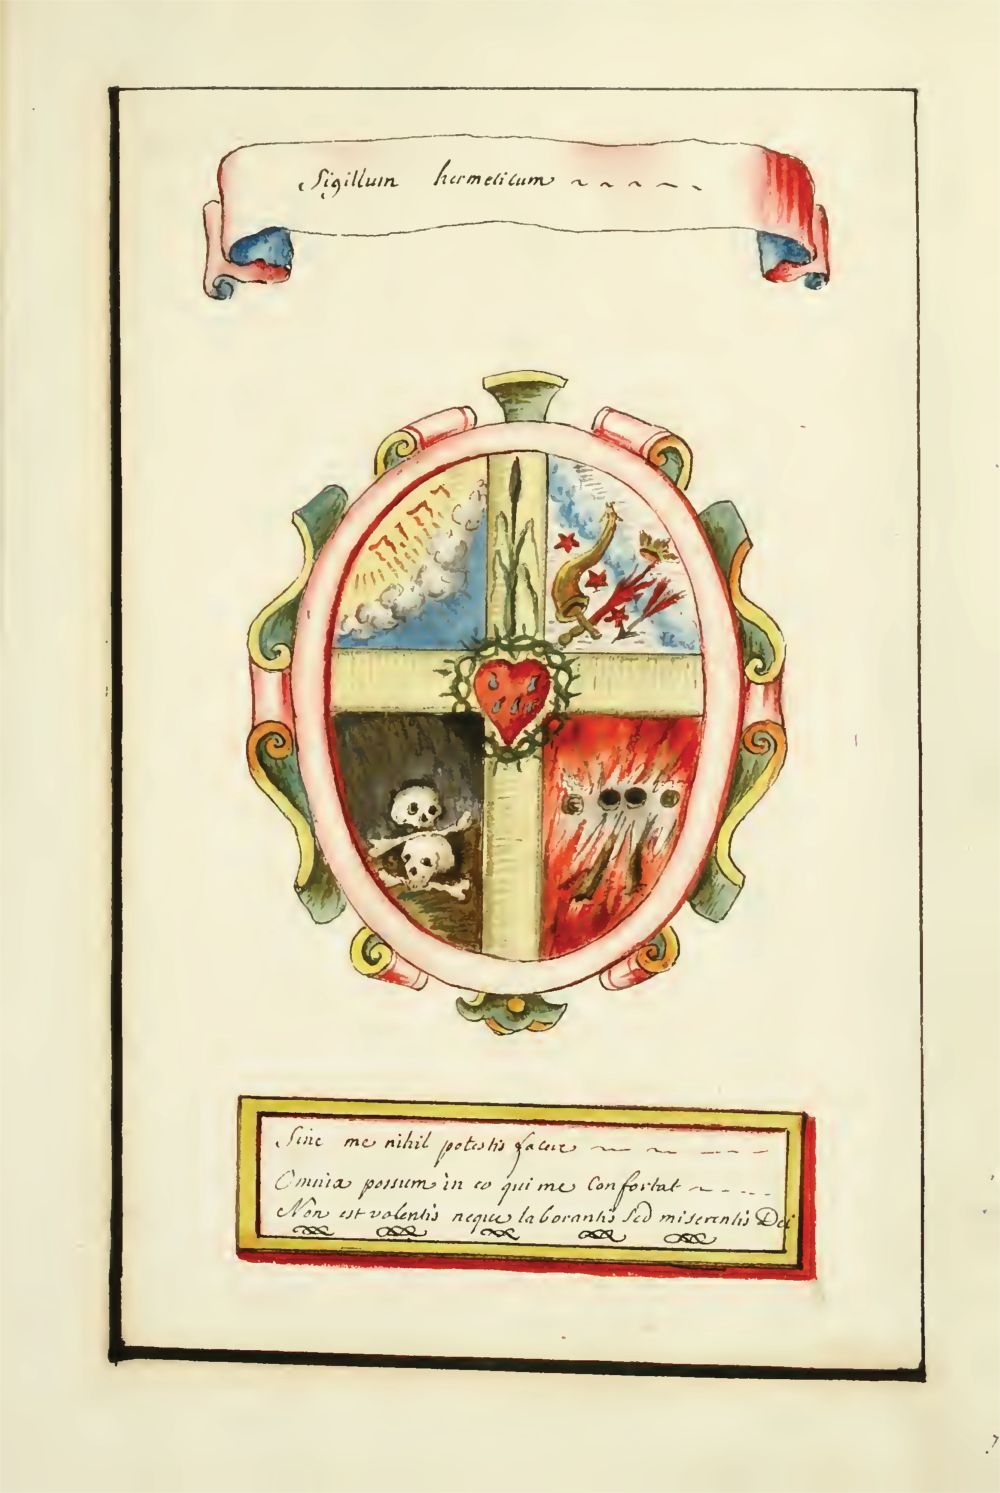 Sigillum hermeticum
יהוה
Sine me nihil potestis facere
Omnia possum in eo qui me Confortat
Non est volentis neque laborantis sed miserentis Dei